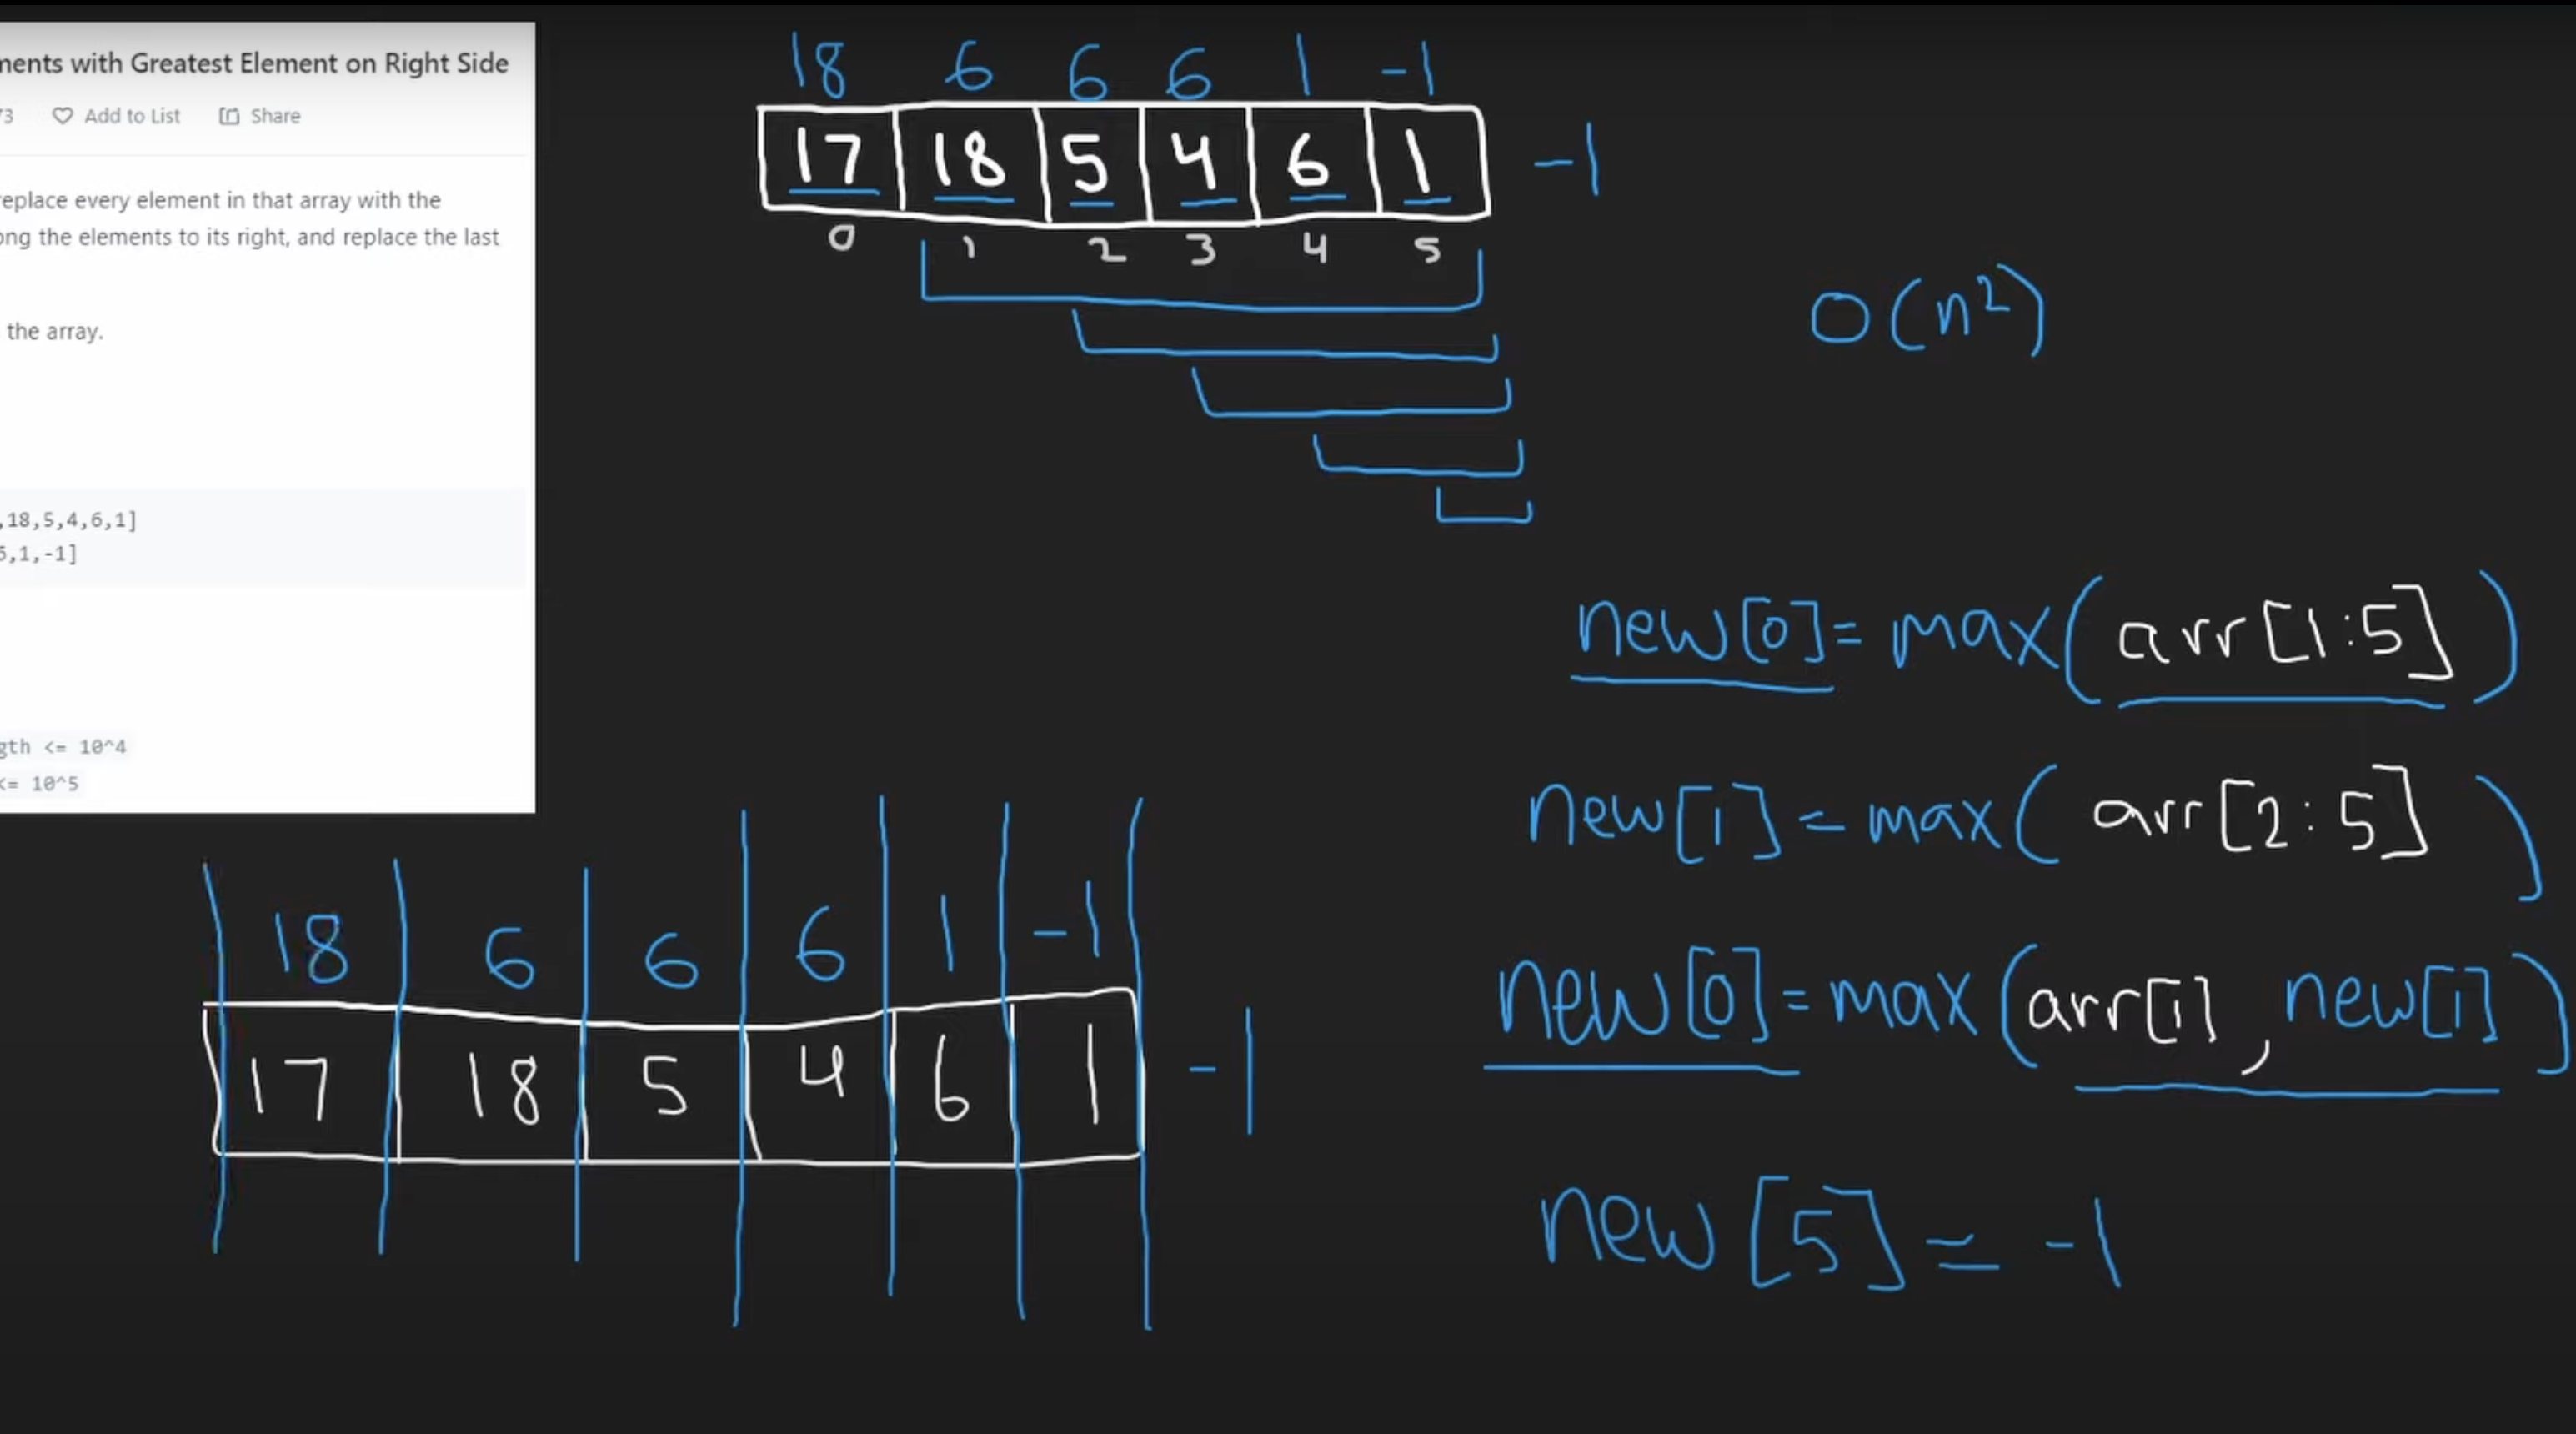 ments with Greatest Element on Right Side
73 Add to List Share
replace every element in that array with the
ong the elements to its right, and replace the last
the array.
,18,5,4,6,1]
,1,-1]
gth <= 10^4
<= 10^5
18 6 6 6 1 -1
17 18 5 4 6 1 -1
0 1 2 3 4 5
O(n²)
new[0]=max(arr[1:5])
new[1]=max(arr[2:5])
new[0]=max(arr[1],new[1])
new[5]=-1
18 6 6 6 1 -1
17 18 5 4 6 1 -1